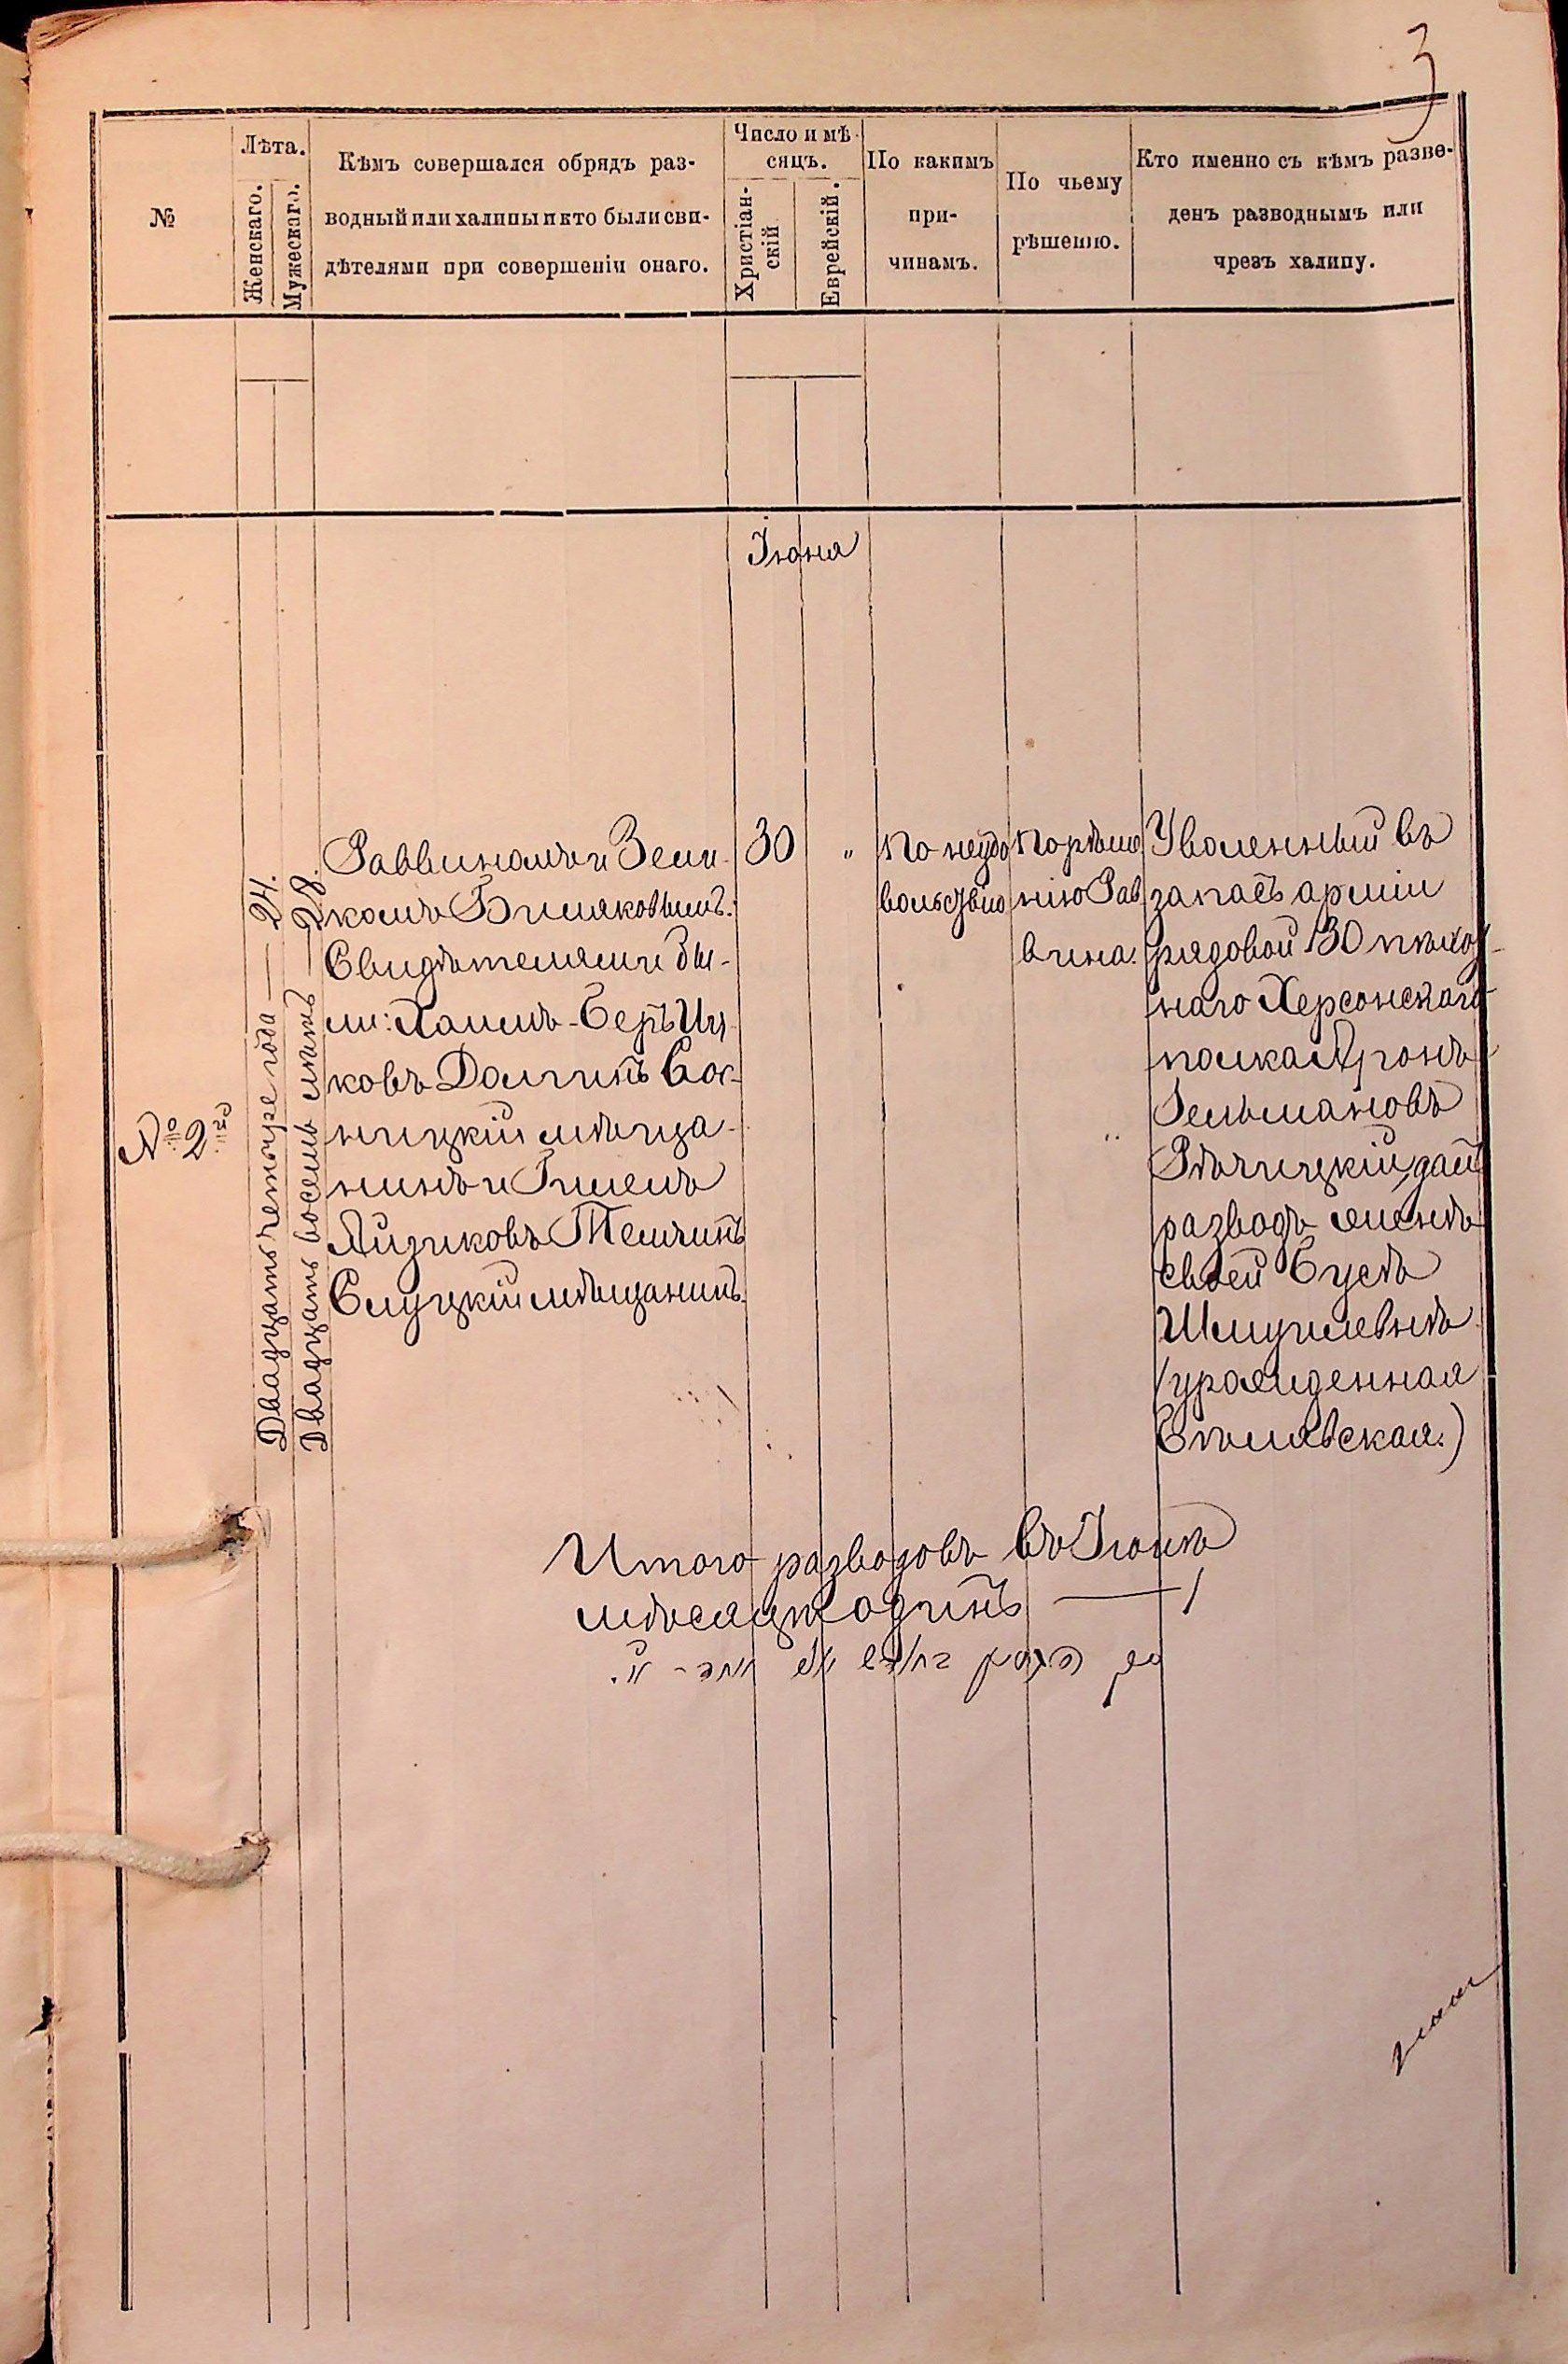 3
№
Лѣта.
Женскаго.
Мужескаго.
Кѣмъ совершался обрядъ раз-
водный или халицы и кто были сви-
дѣтелями при совершеніи онаго.
Число и мѣ-
сяцъ.
Христіан-
скій
Еврейскій.
По какимъ
при-
чинамъ.
По чьему
рѣшенію.
Кто именно съ кѣмъ разве-
денъ разводнымъ или
чрезъ халицу.
Іюня
№ 2й
Двадцать четыре года — 24.
Двадцать восемь лѣтъ — 28.
Раввиномъ
Свидѣтелями бы-
ли: Хаимъ-Беръ Иц
ковъ Долгинъ Сос-
ницкій мѣща-
нинъ и Гилелъ
Айзиковъ Темчинъ
Слуцкій мѣщанинъ.
30
"
По неудо
вольствію
По рѣше
нію Рав
вина.
Уволенный въ
запасъ арміи
рядовой 130 пѣхот-
наго Херсонскаго
полка Аронъ
Гельмановъ
Рѣчицкій, далъ
разводъ женѣ
своей Бусѣ
Шмуилевнѣ
(урожденная
Эпелявская.)
Итого разводовъ въ Іюнѣ
мѣсяцѣ одинъ — 1